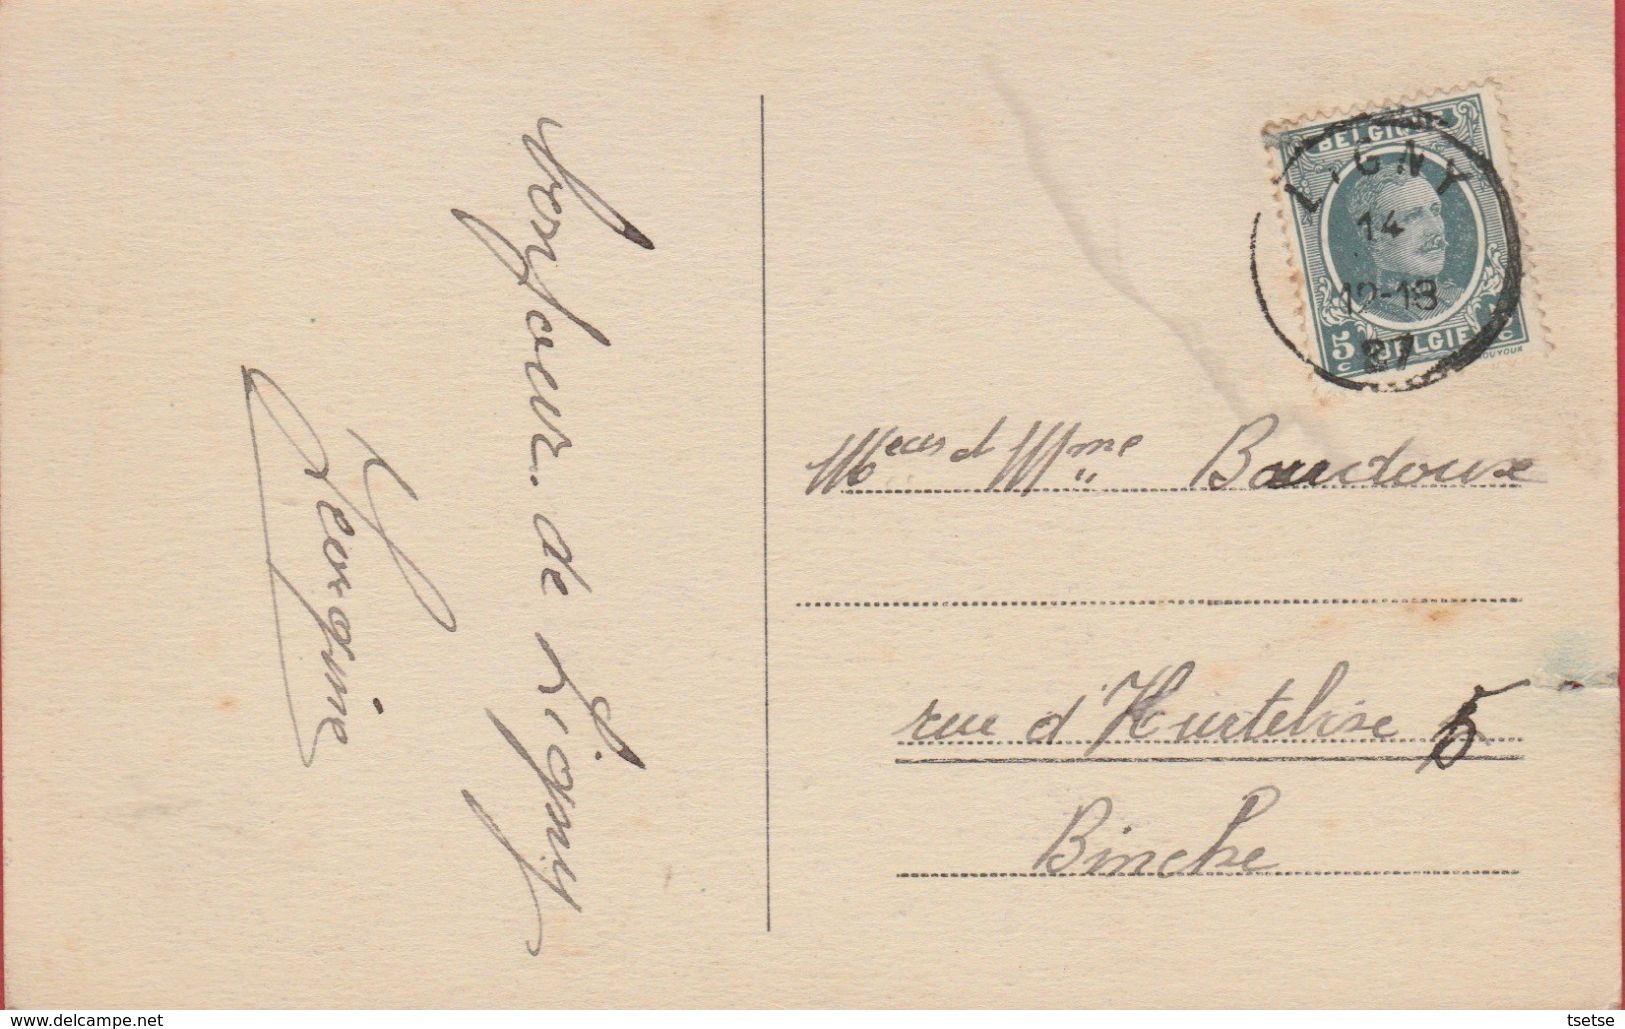 Bonjour de Ligny
Georgine
BELGIQUE
LIGNY
14
12-13
27
5
c
BELGIE
c
Mecurs et Mme Baudoux
rue d'Hurtebise 5
Binche
delcampe.net
tsetse